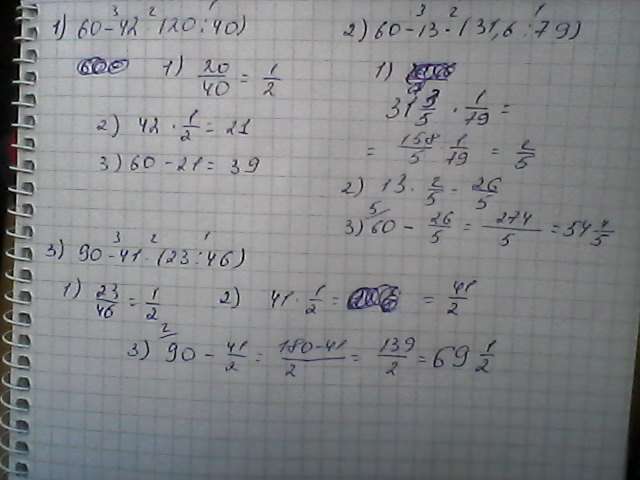 1) 60 - 42 · (20 : 40)
1) 20/40 = 1/2
2) 42 · 1/2 = 21
3) 60 - 21 = 39
2) 60 - 13 · (31,6 : 79)
1)
31 3/5 · 1/79 =
= 158/5 · 1/79 = 2/5
2) 13 · 2/5 = 26/5
3) 60 - 26/5 = 274/5 = 54 4/5
3) 90 - 41 · (23 : 46)
1) 23/46 = 1/2 2) 41 · 1/2 = = 41/2
3) 90 - 41/2 = 180-41/2 = 139/2 = 69 1/2